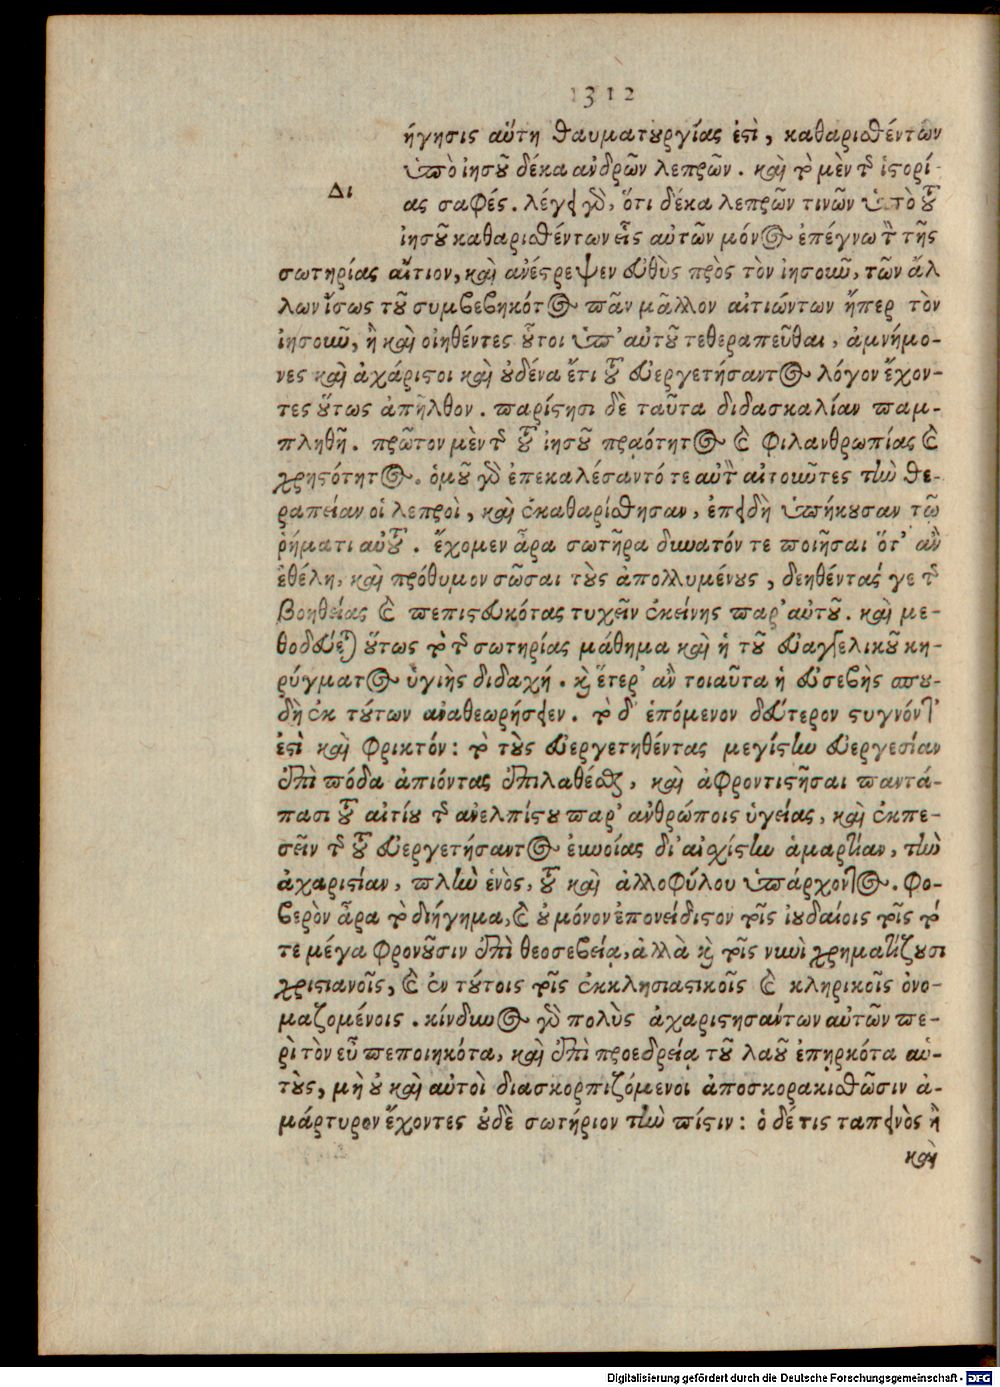 1312
ήγησις αὕτη θαυματουργίας ἐστὶ, καθαρισθέντων
ὑπὸ ἰησοῦ δέκα ἀνδρῶν λεπρῶν. καὶ τὸ μὲν τῆς ἱστορί-
Δι
ας σαφές. λέγει γὰρ, ὅτι δέκα λεπρῶν τινῶν ὑπὸ τοῦ
ἰησοῦ καθαρισθέντων εἷς αὐτῶν μόνος ἐπέγνω τὸ τῆς
σωτηρίας αἴτιον, καὶ ἀνέστρεψεν εὐθὺς πρὸς τὸν ἰησοιῦ, τῶν ἄλ
λων ἴσως τοῦ συμβεβηκότος πᾶν μᾶλλον αἰτιώντων ἤπερ τὸν
ἰησοιῦ, ἢ καὶ οἰηθέντες οὗτοι ὑπ' αὐτοῦ τεθεραπεῦσθαι, ἀμνήμο-
νες καὶ ἀχάριστοι καὶ οὐδένα ἔτι τοῦ εὐεργετήσαντος λόγον ἔχον-
τες οὕτως ἀπῆλθον. παρίστησι δὲ ταῦτα διδασκαλίαν παμ-
πληθῆ. πρῶτον μὲν τῆς τοῦ ἰησοῦ πραότητος καὶ φιλανθρωπίας καὶ
χρηστότητος. ὁμοῦ γὰρ ἐπεκαλέσαντό τε αὐτὸν αἰτοιῦτες τὴν θε-
ραπείαν οἱ λεπροὶ, καὶ ἐκαθαρίσθησαν, ἐπειδὴ ὑπήκουσαν τῷ
ῥήματι αὐτοῦ. ἔχομεν ἆρα σωτῆρα δυνατόν τε ποιῆσαι ὅτ' ἂν
ἐθέλη, καὶ πρόθυμον σῶσαι τοὺς ἀπολλυμένους, δεηθέντας γε τῆς
βοηθείας καὶ πεπιστευκότας τυχεῖν ἐκείνης παρ' αὐτοῦ. καὶ με-
θοδεύεται οὕτως τὸ τῆς σωτηρίας μάθημα καὶ ἡ τοῦ εὐαγγελικοῦ κη-
ρύγματος ὑγιὴς διδαχή. καὶ ἕτερ' ἂν τοιαῦτα ἡ εὐσεβὴς σπου-
δὴ ἐκ τούτων ἀναθεωρήσειεν. τὸ δ' ἑπόμενον δεύτερον στυγνόν τ'
ἐστὶ καὶ φρικτόν: τὸ τοὺς εὐεργετηθέντας μεγίστην εὐεργεσίαν
ἐπὶ πόδα ἀπιόντας ἐπιλαθέσθαι, καὶ ἀφροντιστῆσαι παντά-
πασι τοῦ αἰτίου τῆς ἀνελπίστου παρ' ἀνθρώποις ὑγείας, καὶ ἐκπε-
σεῖν τῆς τοῦ εὐεργετήσαντος ἐννοίας δι' αἰσχίστην ἁμαρτίαν, τὴν
ἀχαριστίαν, πλὴν ἑνὸς, τοῦ καὶ ἀλλοφύλου ὑπάρχοντος. φο-
βερὸν ἆρα τὸ διήγημα, καὶ οὐ μόνον ἐπονείδιστον τοῖς ἰουδαίοις τοῖς τό
τε μέγα φρονοῦσιν ἐπὶ θεοσεβείᾳ, ἀλλὰ καὶ τοῖς νυνὶ χρηματίζουσι
χριστιανοῖς, καὶ ἐν τούτοις τοῖς ἐκκλησιαστικοῖς καὶ κληρικοῖς ὀνο-
μαζομένοις. κίνδυνος γὰρ πολὺς ἀχαριστησάντων αὐτῶν πε-
ρὶ τὸν εὖ πεποιηκότα, καὶ ἐπὶ προεδρείᾳ τοῦ λαοῦ ἐπηρκότα αὐ-
τοὺς, μὴ οὐ καὶ αὐτοὶ διασκορπιζόμενοι ἀποσκορακισθῶσιν ἀ-
μάρτυρον ἔχοντες οὐδὲ σωτήριον τὴν πίστιν: ὁ δέ τις ταπεινὸς ἢ
καὶ
Digitalisierung gefördert durch die Deutsche Forschungsgemeinschaft - DFG